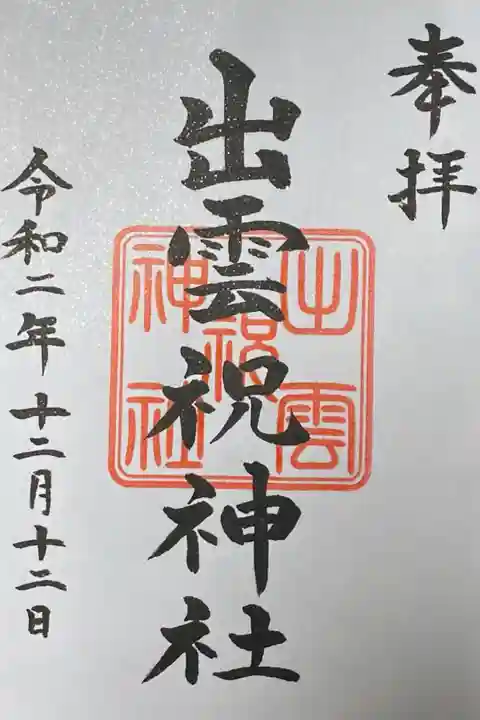 奉拝
出雲祝神社
出雲
祝
神社
令和二年十二月十二日